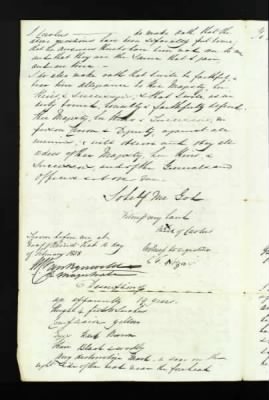 I Carolus do make oath that the
above questions have been separately put to me,
that the answers thereto have been read over to me
and that they are the same that I gave,
and are true.
I do also make oath that I will be faithful &
bear true allegiance to Her Majesty, her
Heirs & Successors, & that I will as in
duty bound, honestly & faithfully defend
Her Majesty, her Heirs & Successors, in
person Crown & Dignity, against all
enemies, & will observe and obey all
orders of Her Majesty, her Heirs &
Successors and of the Generals and
officers set over me.
So help me God
Mark of Carolus
Sworn before me at
this day
of February 1858
Magistrate
Witness to signature
Description
age apparently 19 years.
Height 5 feet 5 inches
Complexion yellow
Eyes Dark Brown
Hair Black & woolly
Any distinctive Mark. a scar on the
right side of the near the forehead